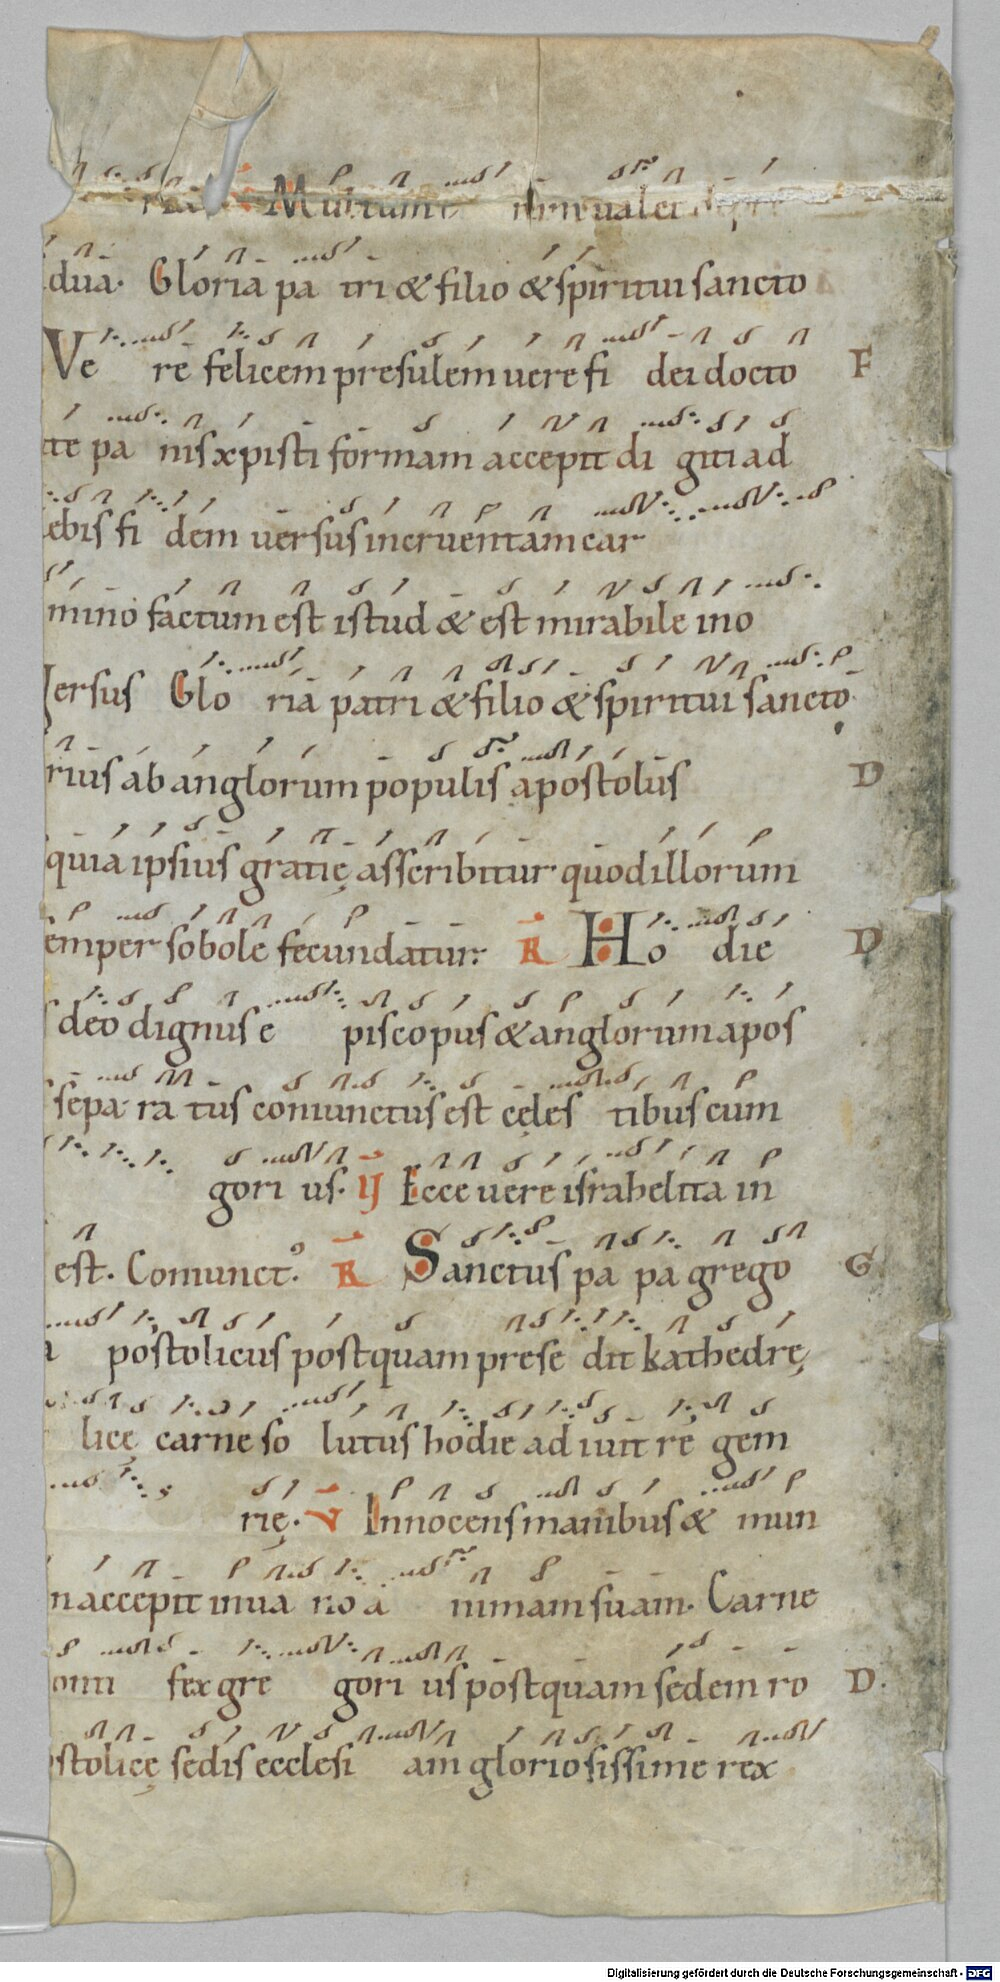 Multum enim ualet depre
dua. Gloria pa tri & filio & spiritui sancto
Ve re felicem presulem uere fi dei docto F
te pa nis xpisti formam accepit di giti ad
ebis fi dem uersus incruentam car
mino factum est istud & est mirabile in o
ersus Glo ria patri & filio & spiritui sancto
rius ab anglorum populis apostolus D
quia ipsius gratię asscribitur quod illorum
emper sobole fecundatur: R Ho die D
deo dignus e piscopus & anglorum apos
sepa ra tus comunctus est cęles tibus cum
gori us. V Ecce uere israhelita in
est. Comunct. R Sanctus pa pa grego G
a postolicus postquam prese dit kathedrę
licę carne so lutus hodie ad iuit re gem
rię. V Innocens manibus & mun
n accepit in ua no a nimam suam. Carne
onti fex gre gori us postquam sedem ro D.
stolicę sedis ecclesi am gloriosissime rex
Digitalisierung gefördert durch die Deutsche Forschungsgemeinschaft - DFG